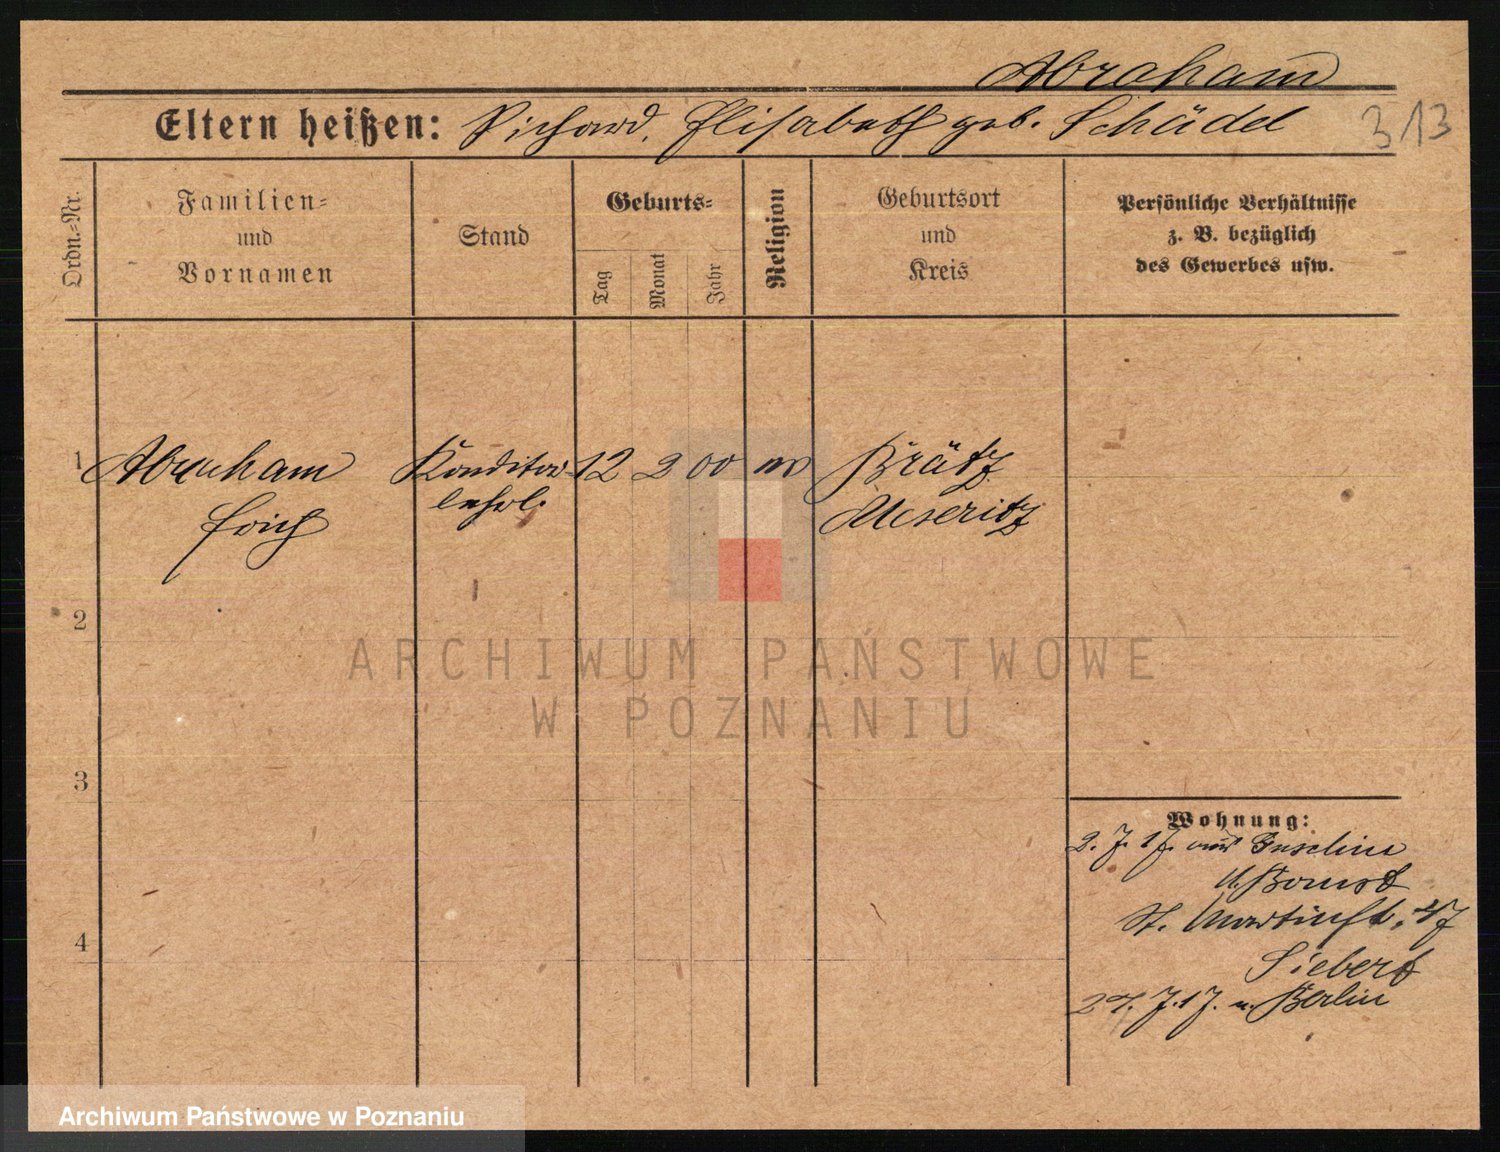 Abraham
Eltern heißen: Richard, Elisabeth geb. Schädel
313
Ordn.-Nr.
Familien-
und
Vornamen
Stand
Geburts-
Tag
Monat
Jahr
Religion
Geburtsort
und
Kreis
Persönliche Verhältnisse
z. B. bezüglich
des Gewerbes usw.
1 Abraham Konditor 12 2 00 Brätz
Erich lehrl. Meseritz
2
3
4
Wohnung:
2. 7. 17. aus
Bomst
St. Martinstr. 47
Siebert
24. 7. 17. n. Berlin
ARCHIWUM PAŃSTWOWE
W POZNANIU
Archiwum Państwowe w Poznaniu